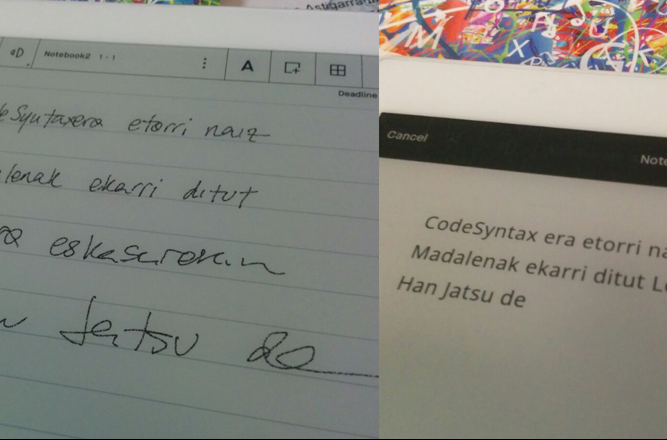 Astigarrag
Notebook2 1-1
A
Deadline
eSyntaxera etorri naiz
lenak ekarri ditut
ra eskasarekin
Jatsu de
Cancel
Note
CodeSyntax era etorri na
Madalenak ekarri ditut L
Han Jatsu de